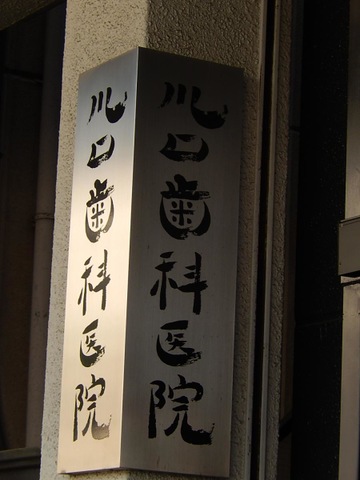 川口歯科医院
川口歯科医院